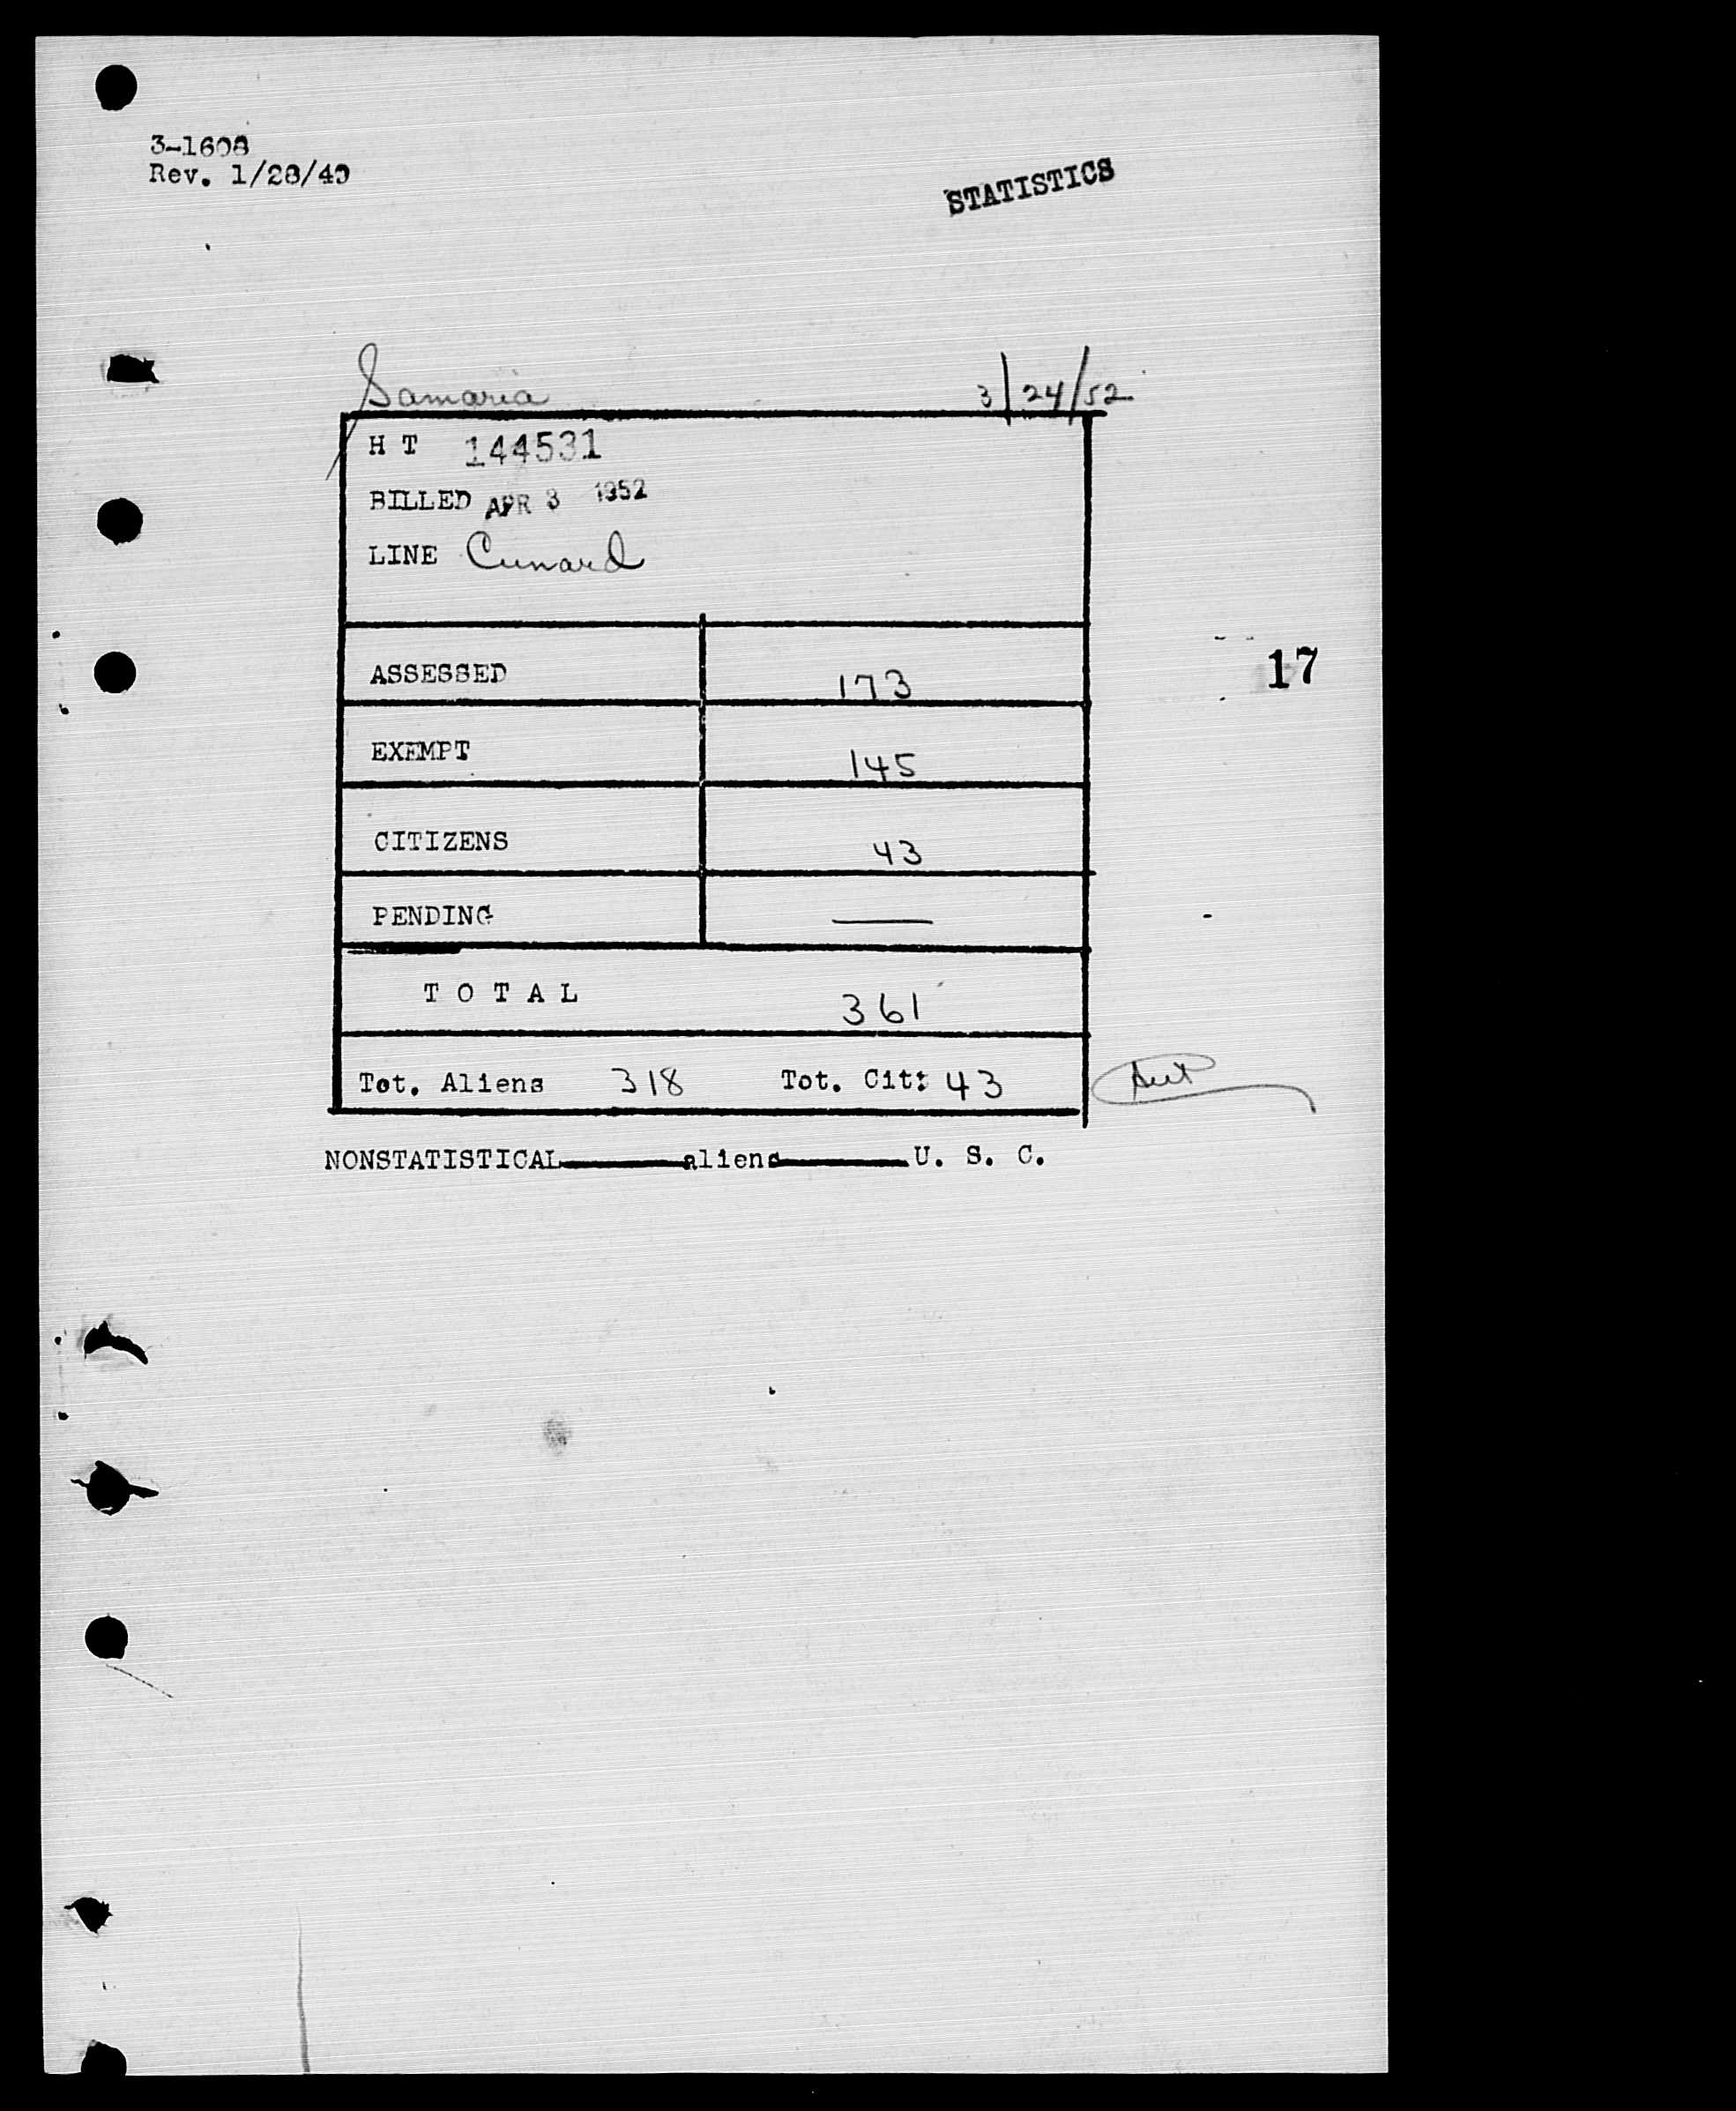 3-1608
Rev. 1/28/49
STATISTICS
Samaria 3/24/52
H T 144531
BILLED APR 3 1952
LINE Cunard
ASSESSED 173
17
EXEMPT 145
CITIZENS 43
PENDING —
T O T A L 361
Tot. Aliens 318 Tot. Cit: 43
NONSTATISTICAL______aliens______U. S. C.